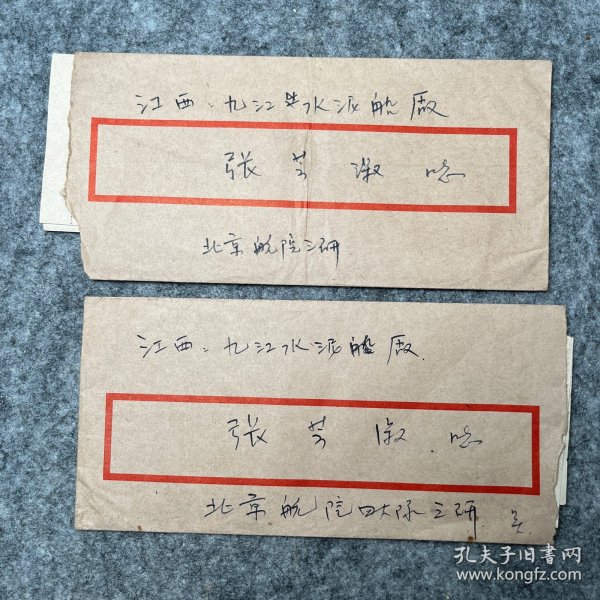 江西：九江 水泥船厂
张芸淑
北京航院三研
江西：九江水泥船厂.
张芸淑
北京航院四大队三研. 吴.
孔夫子旧书网
www.kongfz.com